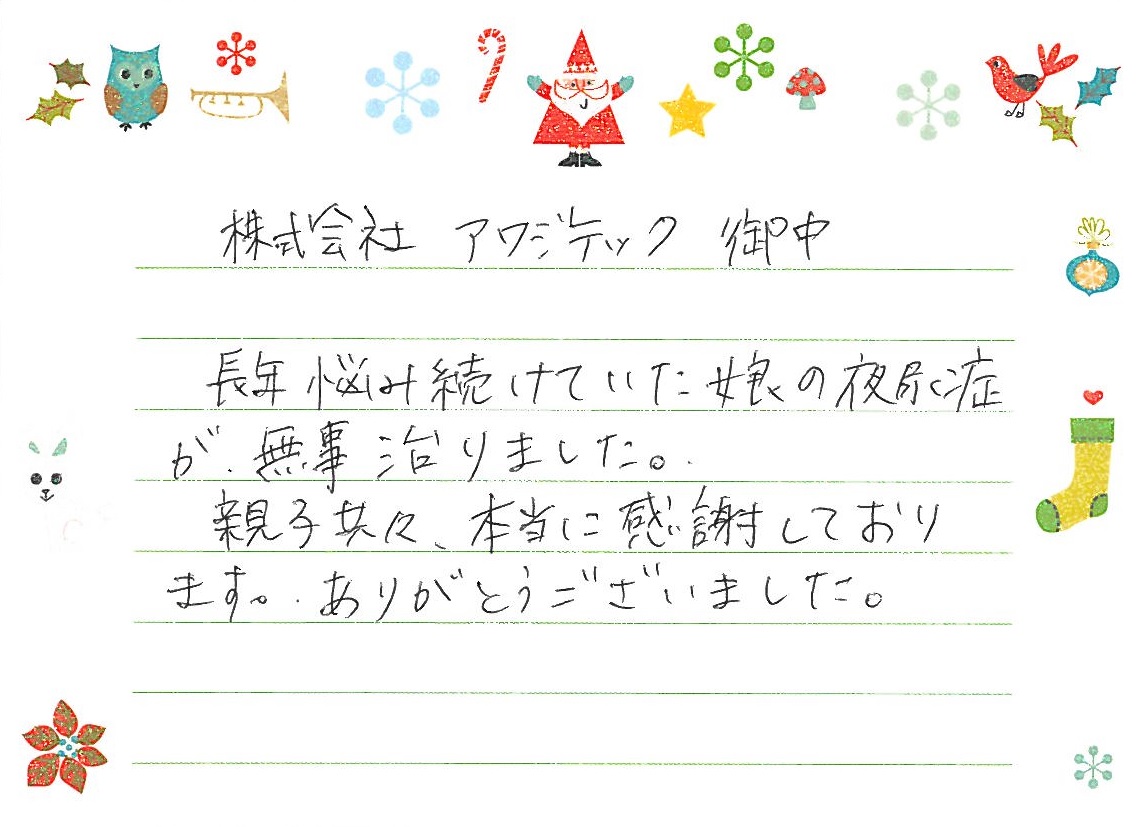 株式会社 アワジテック 御中
長年悩み続けていた娘の夜尿症
が、無事治りました。
親子共々、本当に感謝しており
ます。ありがとうございました。